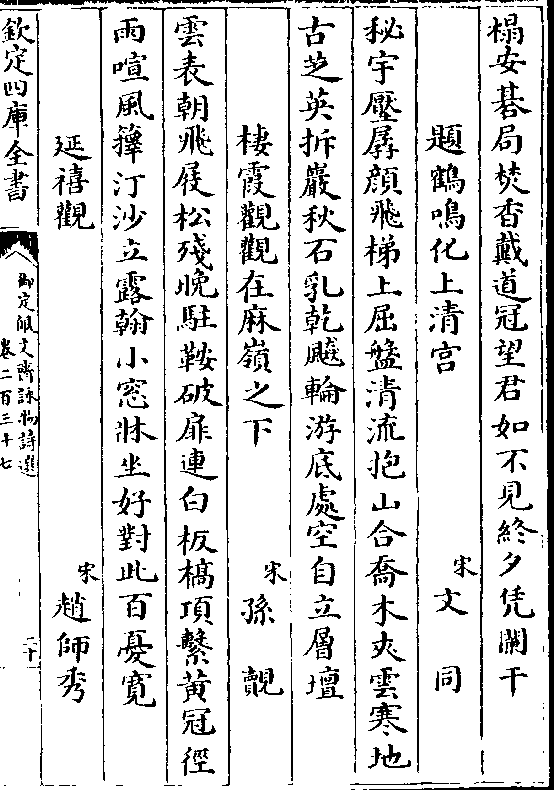 榻安碁局焚香戴道冠望君如不見終夕凭闌干
題鶴鳴化上清宫 宋 文同
秘宇壓孱顔飛梯上屈盤清流抱山合喬木夾雲寒地
古芝英拆巖秋石乳乾飈輪游底處空自立層壇
棲霞觀觀在麻嶺之下 宋 孫覿
雲表朝飛屐松殘晚駐鞍破扉連白板槁項繫黃冠徑
雨喧風籜汀沙立露翰小窓牀坐好對此百憂寛
延禧觀 宋 趙師秀
欽定四庫全書
御定佩文齋詠物詩選
卷二百三十七
二十